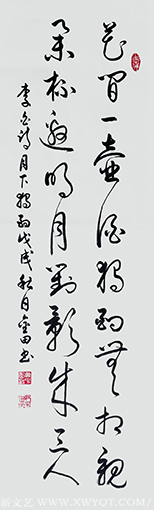 花間一壺酒獨酌無相親
舉杯邀明月對影成三人
李白詩月下獨酌戊戌秋月金田書
新文艺 WWW.XWYQT.COM